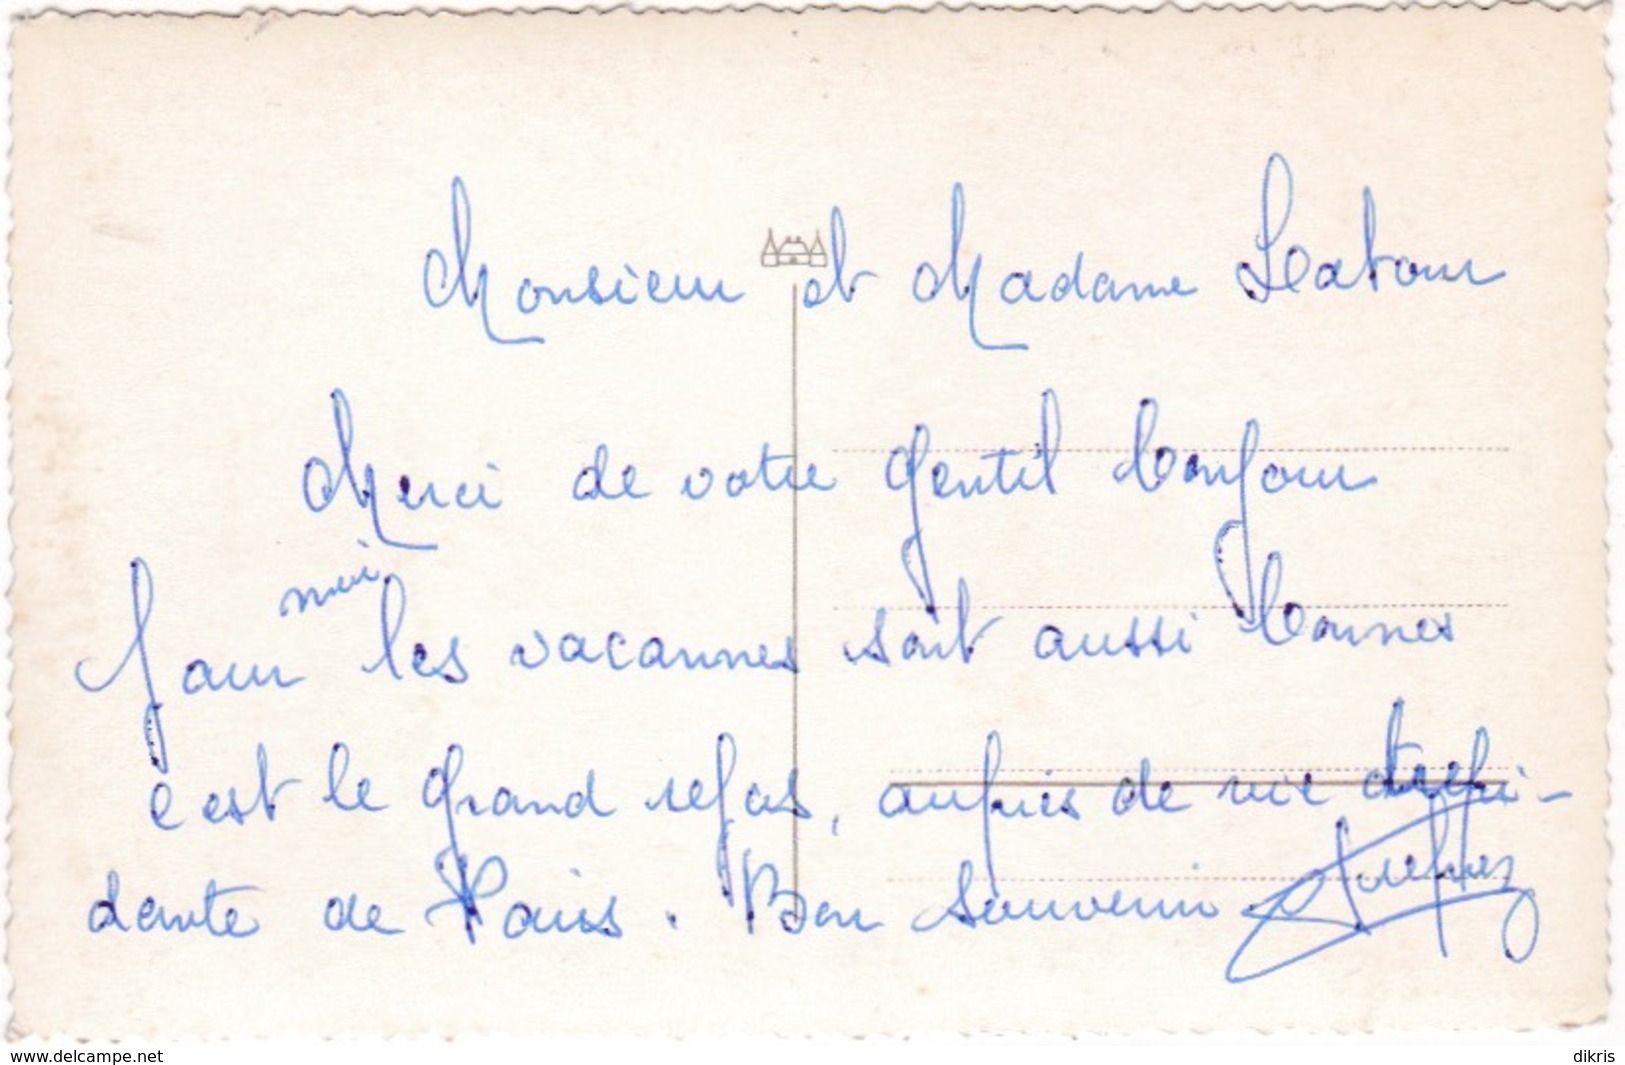 Monsieur et Madame Latour
Merci de votre gentil bonjour
Pour moi les vacances sont aussi bonnes
c'est le grand repos, auprès de vie trépi-
dante de Paris. Bon souvenir
www.delcampe.net
dikris